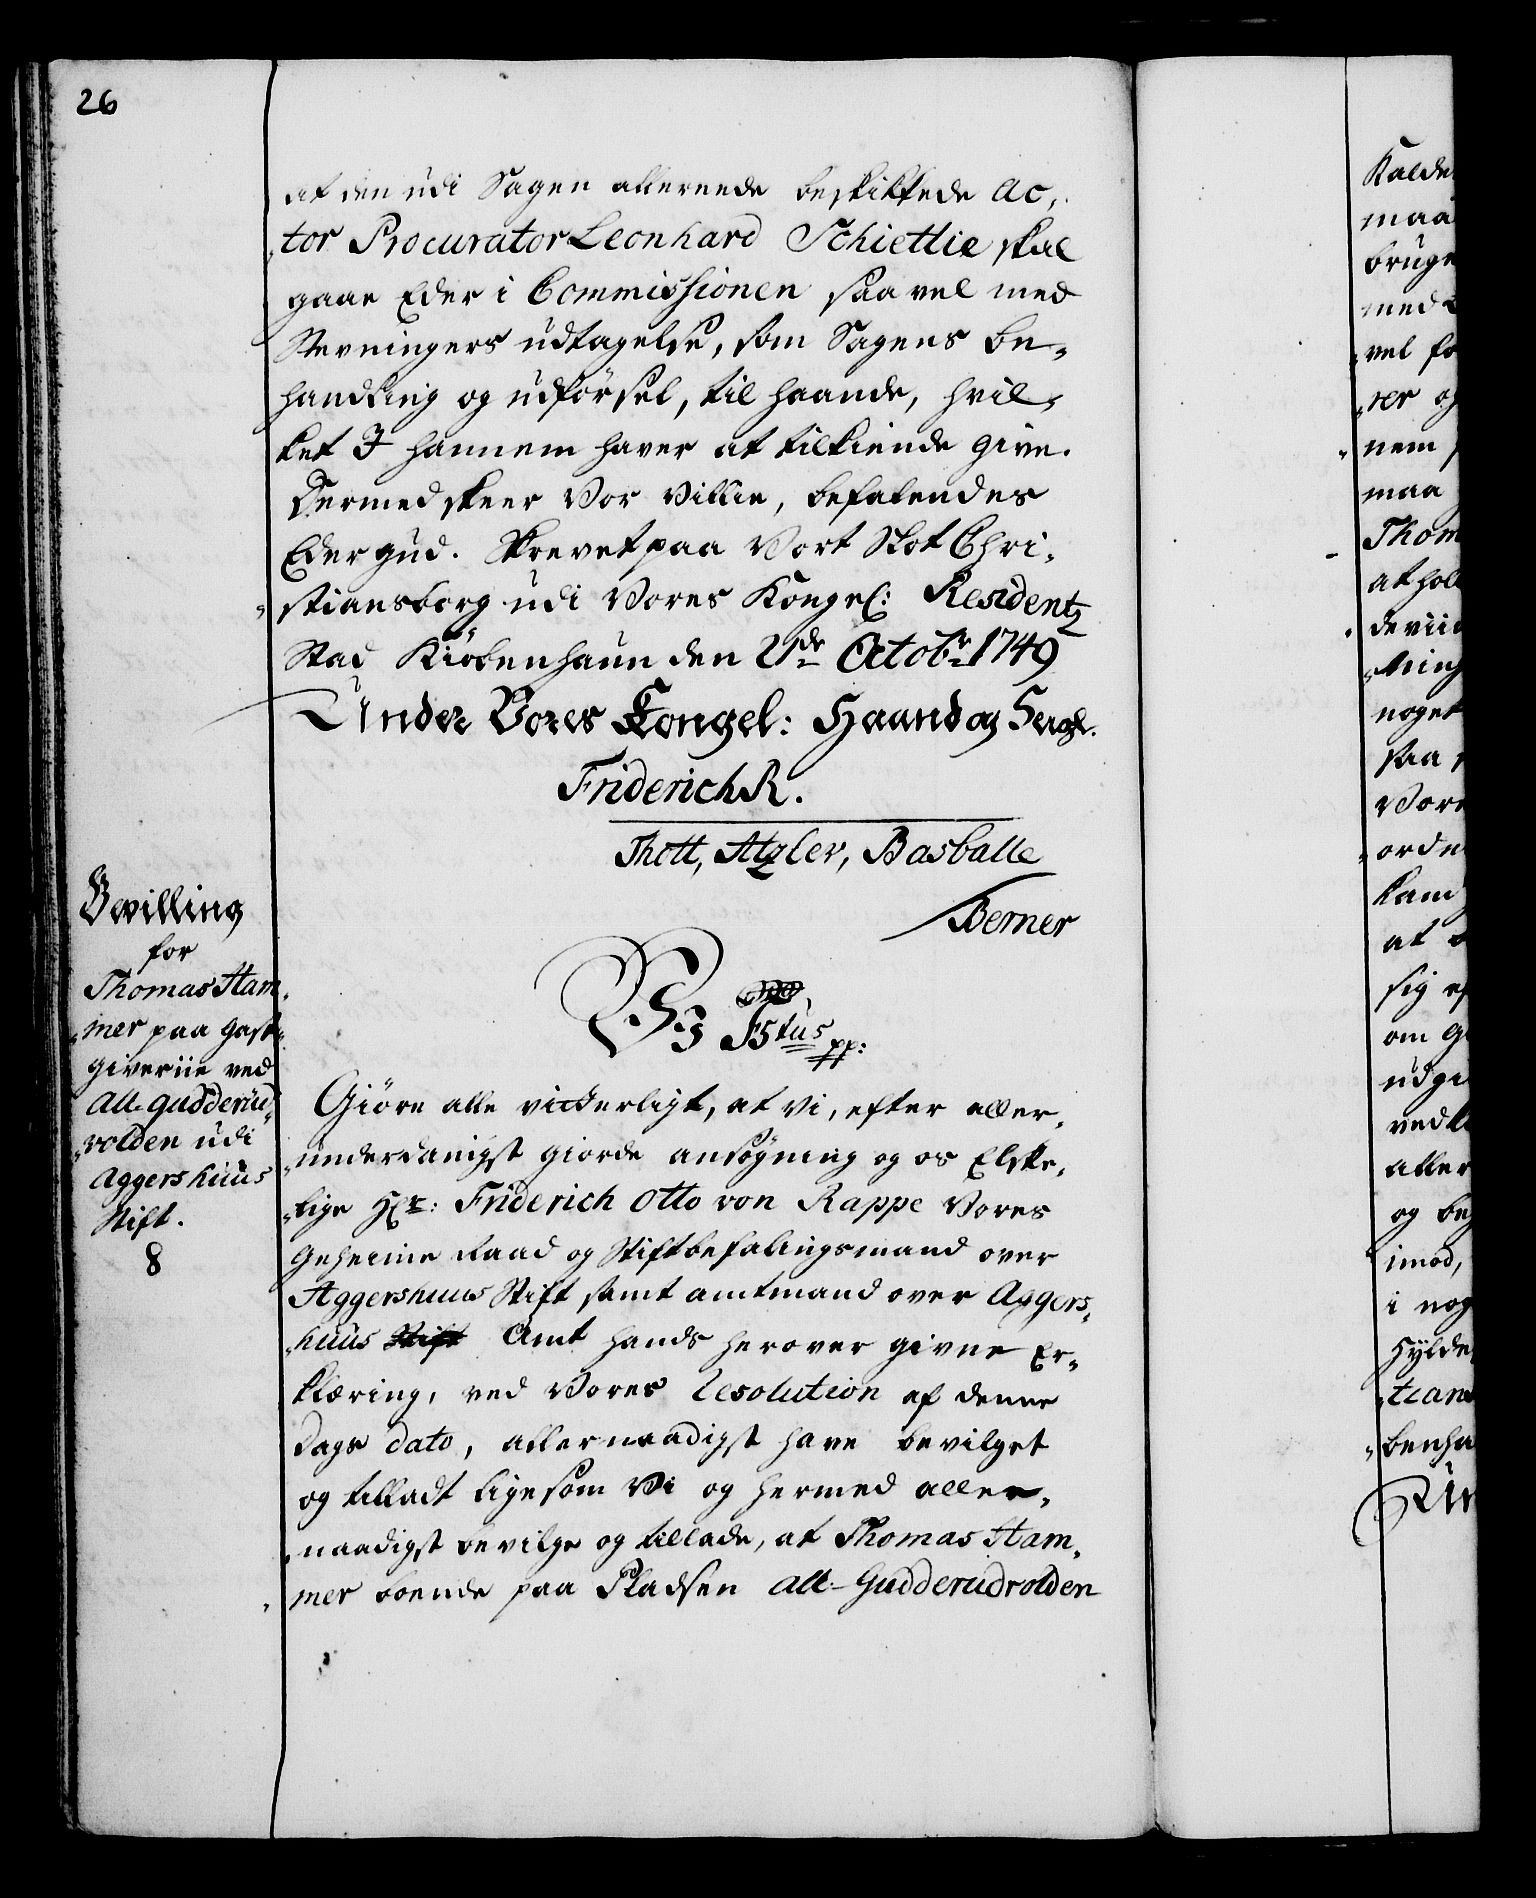 26
at den udi Sagen allereede beskikkede Ac-
tor Procurator Leonhard Schiettie skal
gaae Eder i Commissionen saavel med
Stevningers udtagelse, som Sagens be-
handling og udførsel, til haande, hvil-
ket I hannem haver at tilkiende give.
Dermed skeer Vor Villie, befalendes
Eder Gud. Skrevet paa Vort Slot Chri-
stiansborg udi Vores Kongel: Residentz
Stad Kiöbenhaun den 21de Octobr 1749
Under Vores Kongel: Haand og Seigl.
Friderich R.
Thott, Atzler, Basballe
Berner
Bewilling
for
Thomas Ham-
mer paa gast-
giveriie ved
Alt-gudderud-
volden udi
Aggershuus
Stift.
8
Wi F5tus pp:
Giöre alle vitterligt, at vi, efter aller-
underdanigst giorde ansøgning og os Elske-
lige Hr: Friderich Otto von Rappe Vores
Geheime Raad og Stiftbefalingsmand over
Aggershuus Stift samt amtmand over Aggers-
huus Stift Amt hands herover givne Er-
klæring, ved Vores Resolution af denne
Dags dato, allernaadigst have bevilget
og tilladt ligesom Vi og hermed aller-
naadigst bevilge og tillade, at Thomas Ham-
mer boende paa Pladsen Alt-Gudderudvolden
Kalde
maa
bruge
med
vel fo
rer og
nem
maa
Thom
at hol
deviid
Ning
noget
saa
Vore
orden
kand
at
sig
om
udgi
ved
aller
og be
imod,
i nog
Hylde
tian
benha
Un